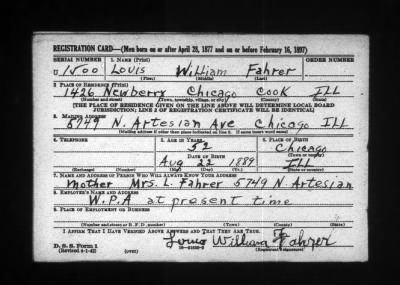 REGISTRATION CARD—(Men born on or after April 28, 1877 and on or before February 16, 1897)
SERIAL NUMBER 1. NAME (Print) ORDER NUMBER
U 1500 Louis William Fahrer
(First) (Middle) (Last)
2. PLACE OF RESIDENCE (Print)
1426 Newberry Chicago Cook Ill
(Number and street) (Town, township, village, or city) (County) (State)
[THE PLACE OF RESIDENCE GIVEN ON THE LINE ABOVE WILL DETERMINE LOCAL BOARD
JURISDICTION; LINE 2 OF REGISTRATION CERTIFICATE WILL BE IDENTICAL]
3. MAILING ADDRESS
5749 N. Artesian Ave Chicago Ill
[Mailing address if other than place indicated on line 2. If same insert word same]
4. TELEPHONE 5. AGE IN YEARS 6. PLACE OF BIRTH
52 Chicago
DATE OF BIRTH (Town or county)
Aug 22 1889 Ill
(Exchange) (Number) (Mo.) (Day) (Yr.) (State or country)
7. NAME AND ADDRESS OF PERSON WHO WILL ALWAYS KNOW YOUR ADDRESS
Mother Mrs. L. Fahrer 5749 N. Artesian
8. EMPLOYER'S NAME AND ADDRESS
W.P.A at present time
9. PLACE OF EMPLOYMENT OR BUSINESS
(Number and street or R. F. D. number) (Town) (County) (State)
I AFFIRM THAT I HAVE VERIFIED ABOVE ANSWERS AND THAT THEY ARE TRUE.
D. S. S. Form 1 Louis William Fahrer
(Revised 4-1-42) (over) (Registrant's signature)